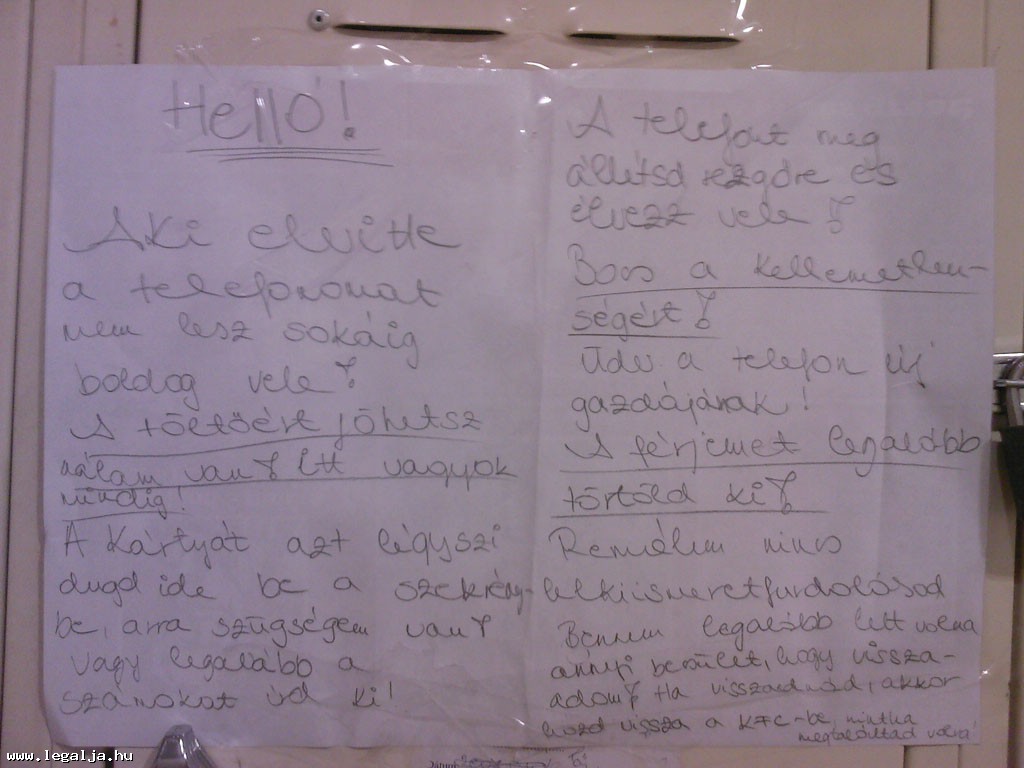 Helló!
Aki elvitte
a telefonomat
nem lesz sokáig
boldog vele!
A töltőért jöhetsz
nálam van! Itt vagyok
mindig!
A kártyát azt légyszi
dugd ide be a szekrény-
be, arra szügségem van!
vagy legalább a
számokat írd ki!
A telefont meg
állítsd rezgőre és
élvezz vele!
Bocs a kellemetlen-
ségért!
Üdv a telefon új
gazdájának!
A férjemet legalább
töröld ki!
Remélem nincs
lelkiismeretfurdolásod
Bennem legalább lett volna
annyi becsület, hogy vissza-
adom! Ha visszaadnád, akkor
hozd vissza a KFC-be, mintha
megtaláltad volna
www.legalja.hu